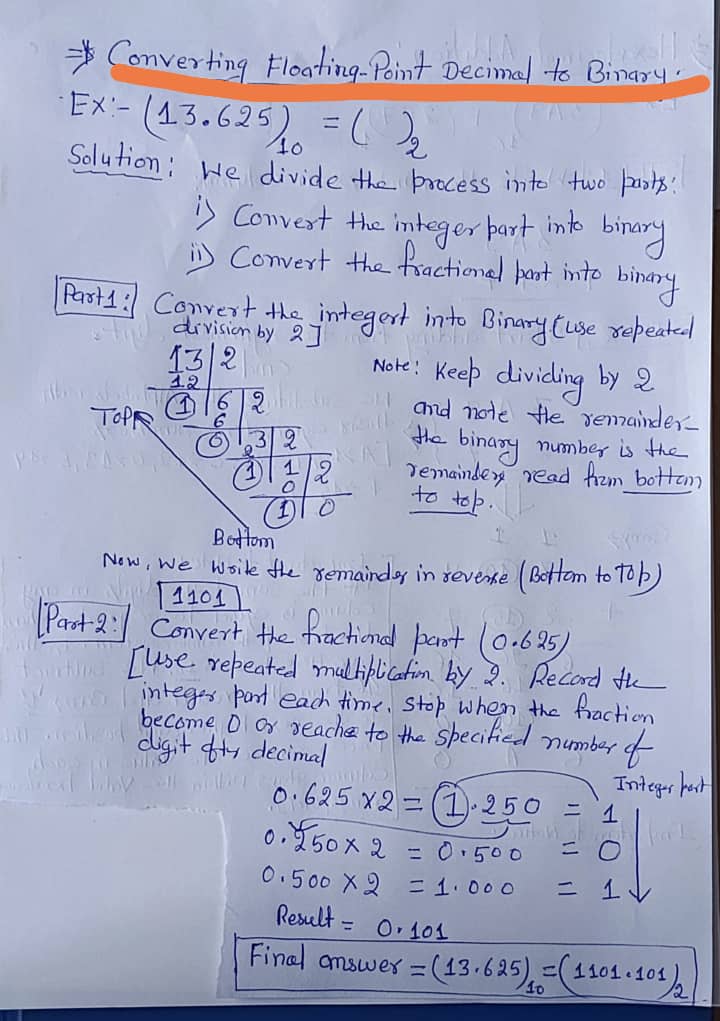 => Converting Floating-Point Decimal to Binary.
Ex:- (13.625)10 = ( )2
Solution: We divide the process into two parts:
i) Convert the integer part into binary
ii) Convert the fractional part into binary
Part 1: Convert the integert into Binary [use repeated
division by 2]
13 | 2
12
1 | 6 | 2
6
0 | 3 | 2
2
1 | 1 | 2
0
1 | 0
Top
Bottom
Note: Keep dividing by 2
and note the remainder-
the binary number is the
remainders read from bottom
to top.
Now, we write the remainders in reverse (Bottom to Top)
1101
Part-2: Convert the fractional part (0.625)
[Use repeated multiplication by 2. Record the
integer part each time, stop when the fraction
become 0 or reache to the specified number of
digit after decimal
Integer part
0.625 x 2 = 1.250 = 1
0.250 x 2 = 0.500 = 0
0.500 x 2 = 1.000 = 1
Result = 0.101
Final answer = (13.625)10 = (1101.101)2